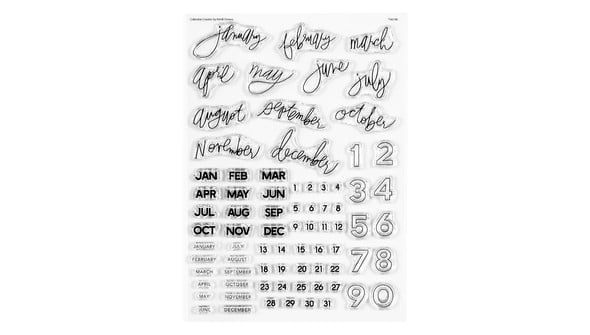 january february march
april may june july
august september october
November december
JAN FEB MAR
APR MAY JUN
JUL AUG SEP
OCT NOV DEC
1 2 3 4
5 6 7 8
9 10 11 12
13 14 15 16 17
18 19 20 21 22
23 24 25 26 27
28 29 30 31
JANUARY JULY
FEBRUARY AUGUST
MARCH SEPTEMBER
APRIL OCTOBER
MAY NOVEMBER
JUNE DECEMBER
1 2
3 4
5 6
7 8
9 0